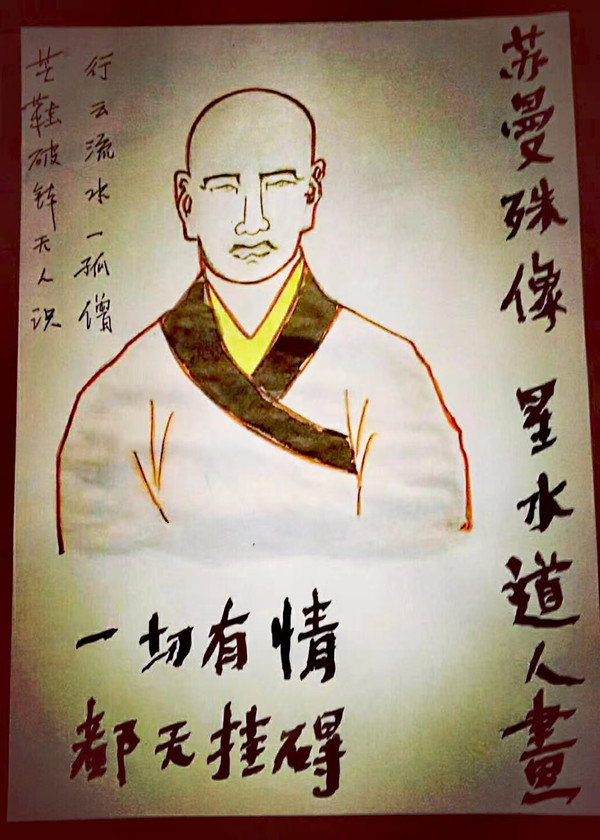 苏曼殊像 星水道人畫
行云流水一孤僧
芒鞋破钵无人识
一切有情
都无挂碍